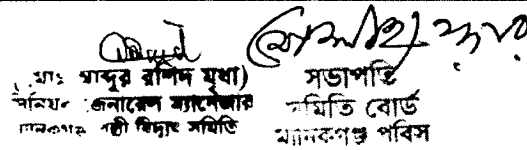 মোঃ আব্দুর রশিদ মৃধা)
সিনিয়র জেনারেল ম্যানেজার
মানিকগঞ্জ পল্লী বিদ্যুৎ সমিতি
সভাপতি
সমিতি বোর্ড
মানিকগঞ্জ পবিস